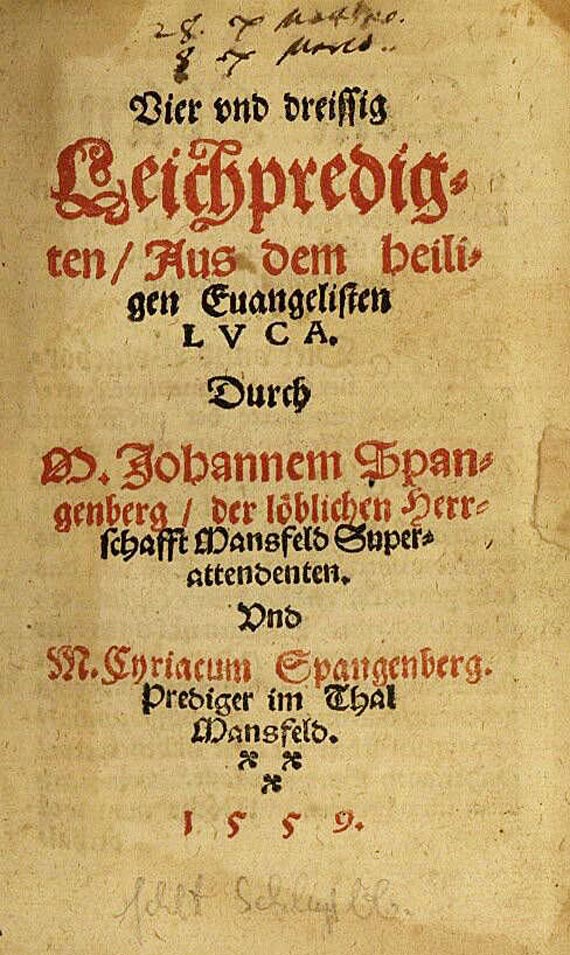 28. 
8 
Vier vnd dreissig
Leichpredig-
ten / Aus dem heili-
gen Euangelisten
LVCA.
Durch
M. Johannem Span-
genberg / der löblichen Herr-
schafft Mansfeld Super-
attendenten.
Vnd
M. Cyriacum Spangenberg.
Prediger im Thal
Mansfeld.
1559.